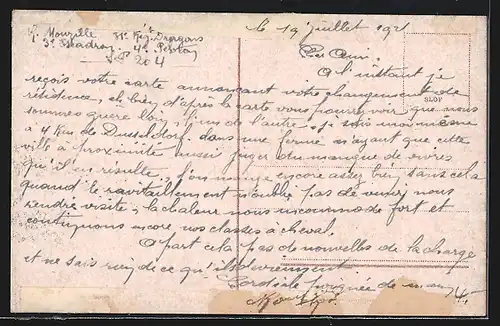 31e Rég't Dragons
3e Escadron, 4e Peloton
S.P. 204
Le 19 juillet 1921
Cher Ami
A l'instant je
reçois votre carte annonçant votre changement de
résidence, eh bien d'après la carte vous pourrez voir que nous
sommes guère loin l'un de l'autre, je suis moi-même
à 4 Kms de Dusseldorf dans une ferme n'ayant que cette
ville à proximité aussi juger du manque de vivres
qu'il en résulte, l'on mange encore assez bien sans cela
quand le ravitaillement n'oublie pas de venir nous
rendre visite, la chaleur nous incommode fort et
continuons encore nos classes à cheval.
A part cela pas de nouvelles de la charge
et ne sais rien de ce qu'ils deviennent
Cordiale poignée de main
SLOF